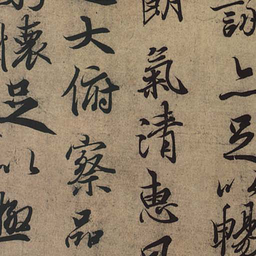 詠亦足以暢
朗氣清惠
大俯察品
懷足以極